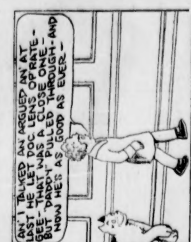 AN' I TALKED AN' ARGUED AN' AT
LAST HE LET DOC LENS OP'RATE-
GEE! THAT WAS A CLOSE ONE-
BUT DADDY PULLED THROUGH-AND
NOW HE'S AS GOOD AS EVER-